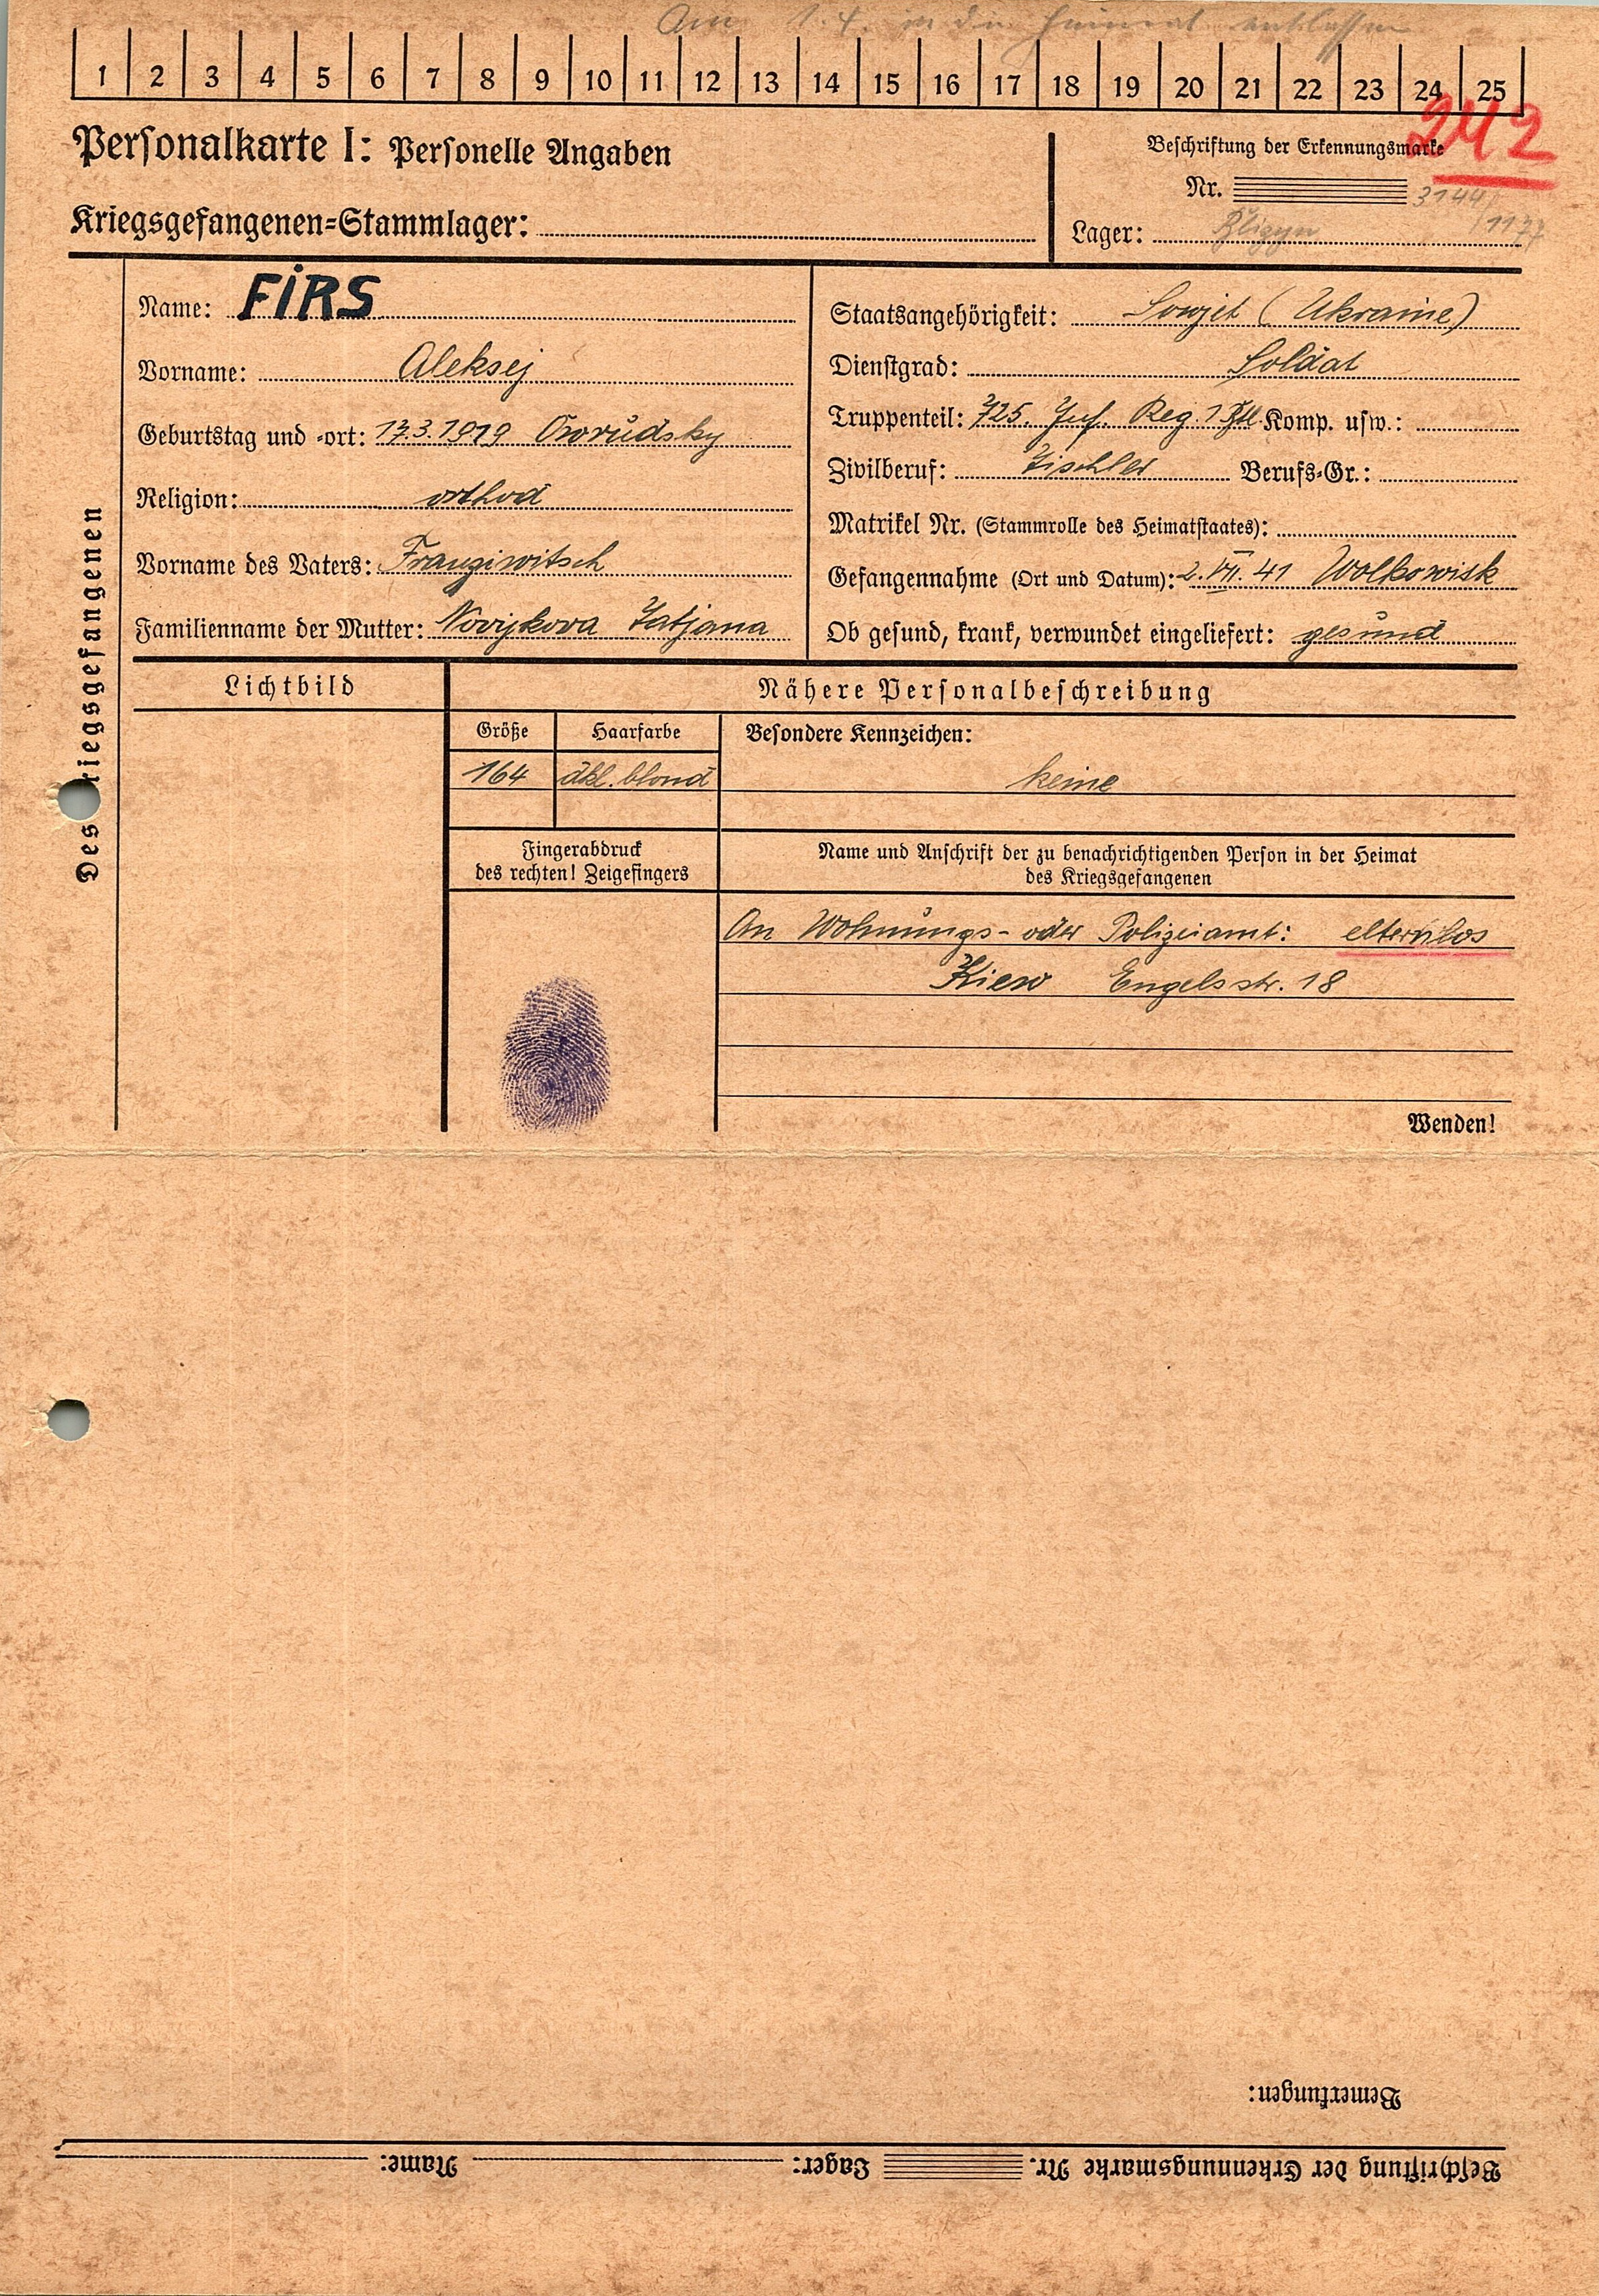 Am 1.4. in die Heimat entlassen
1 2 3 4 5 6 7 8 9 10 11 12 13 14 15 16 17 18 19 20 21 22 23 24 25
242
Personalkarte I: Personelle Angaben
Kriegsgefangenen-Stammlager:
Beschriftung der Erkennungsmarke
Nr. 3144/
Lager: Blizyn /1177
Des Kriegsgefangenen
Name: FIRS
Vorname: Aleksej
Geburtstag und -ort: 17.3.1919 Owrudsky
Religion: orthod
Vorname des Vaters: Franziwitsch
Familienname der Mutter: Novijkova Tatjana
Staatsangehörigkeit: Sowjet (Ukraine)
Dienstgrad: Soldat
Truppenteil: 725. Inf. Reg. 1 Komp. usw.:
Zivilberuf: Tischler Berufs-Gr.:
Matrikel Nr. (Stammrolle des Heimatstaates):
Gefangennahme (Ort und Datum): 2. VII. 41 Wolkowisk
Ob gesund, krank, verwundet eingeliefert: gesund
Lichtbild
Nähere Personalbeschreibung
Größe Haarfarbe Besondere Kennzeichen:
164 dkl. blond keine
Fingerabdruck
des rechten! Zeigefingers
Name und Anschrift der zu benachrichtigenden Person in der Heimat
des Kriegsgefangenen
An Wohnungs- oder Polizeiamt: elternlos
Kiew Engelsstr. 18
Wenden!
Bemerkungen:
Beschriftung der Erkennungsmarke Nr. Lager: Name: